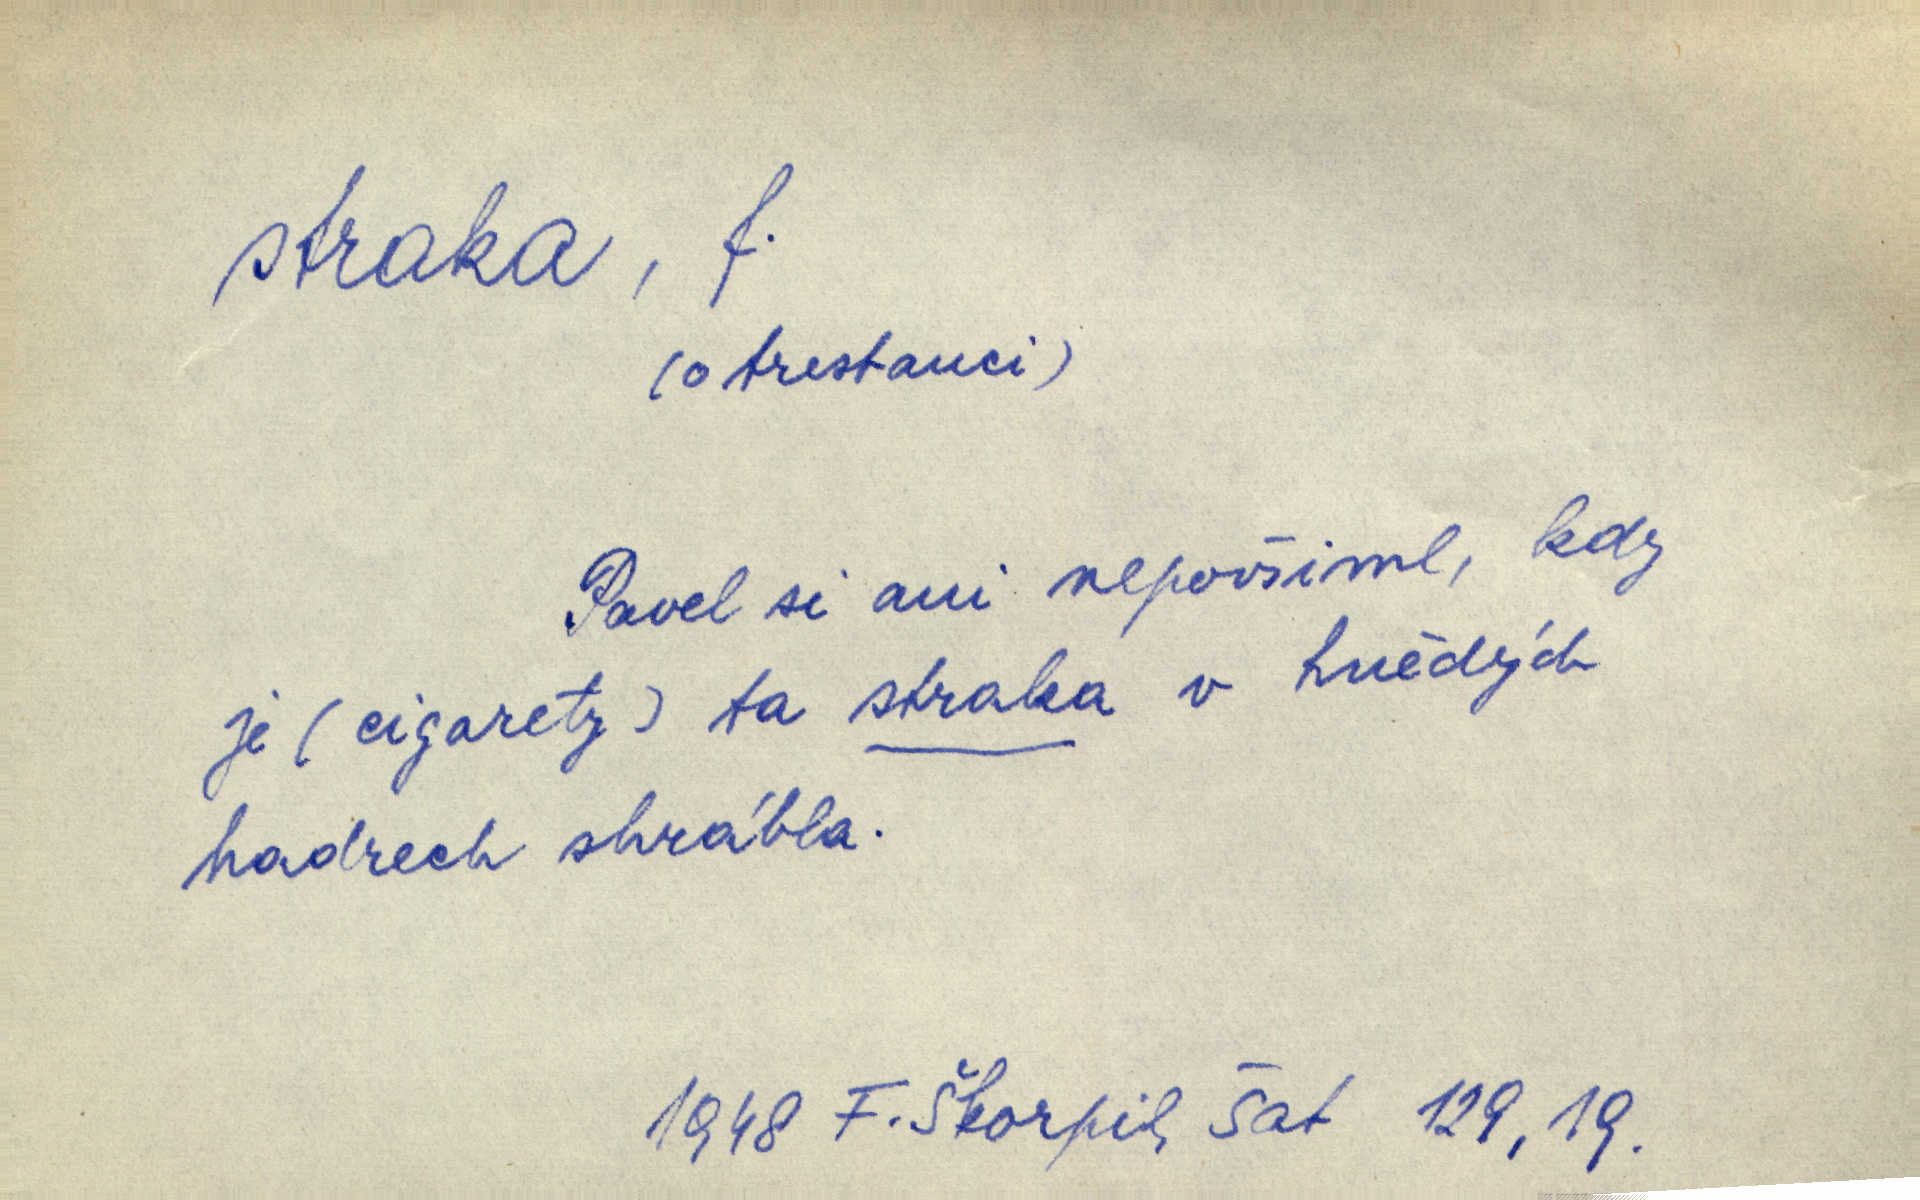 straka, f.
(o trestanci)
Pavel si ani nepovšiml, kdy
je (cigarety) ta straka v hnědých
hadrech shrábla.
1948 F. Škorpil, Šat 129, 19.